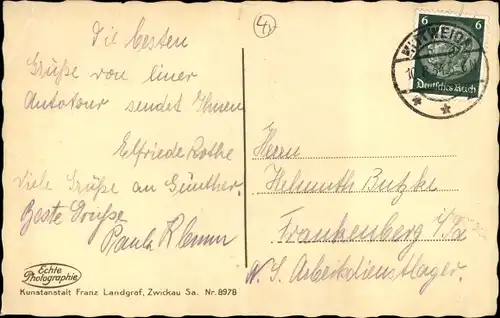 4
Die besten
Grüße von einer
Autotour sendet Ihnen
Elfriede Rothe
Viele Grüße an Günther.
Beste Grüße
Paula
Echte
Photographie
Kunstanstalt Franz Landgraf, Zwickau Sa. Nr. 8978
6 6
MITTWEIDA
Deutsches Reich
Herrn
Helmuth Butzke
Frankenberg i/Sa
N. S. Arbeitsdienstlager.